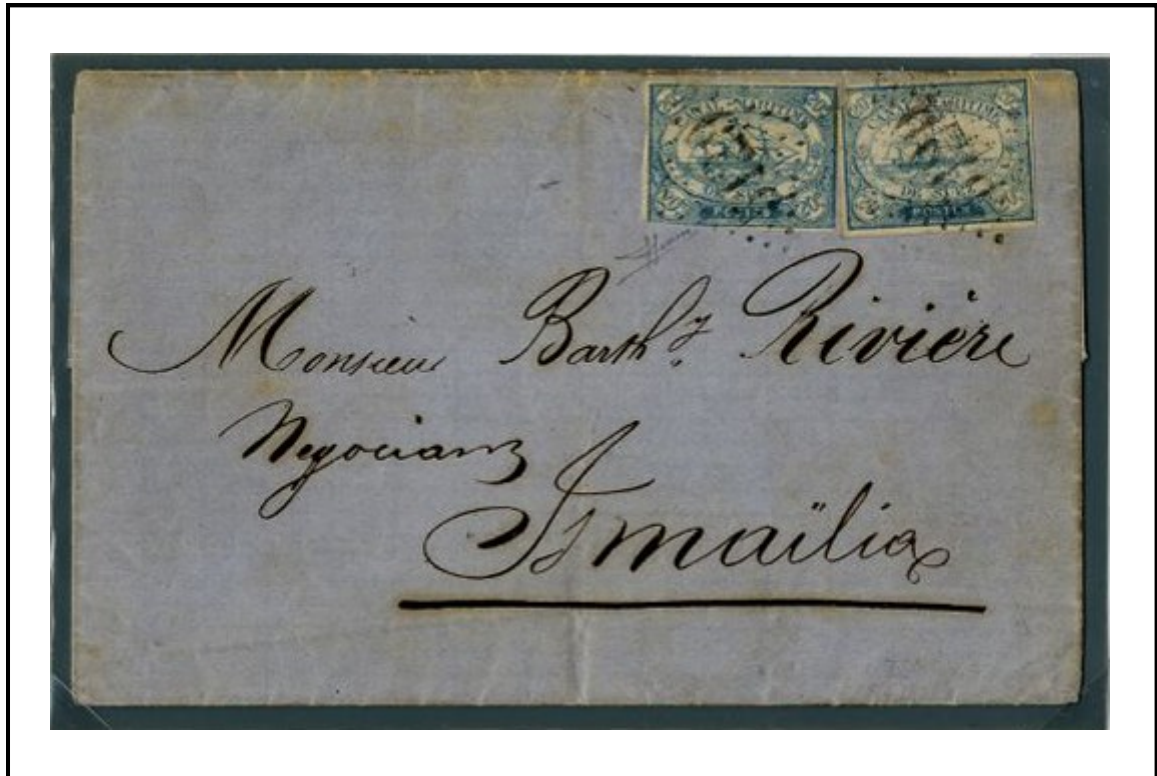 20 CANAL MARITIME 20
DE SUEZ
20 POSTES 20
20 CANAL MARITIME 20
DE SUEZ
20 POSTES 20
Monsieur Barthy. Rivière
Negociant
Ismaïlia